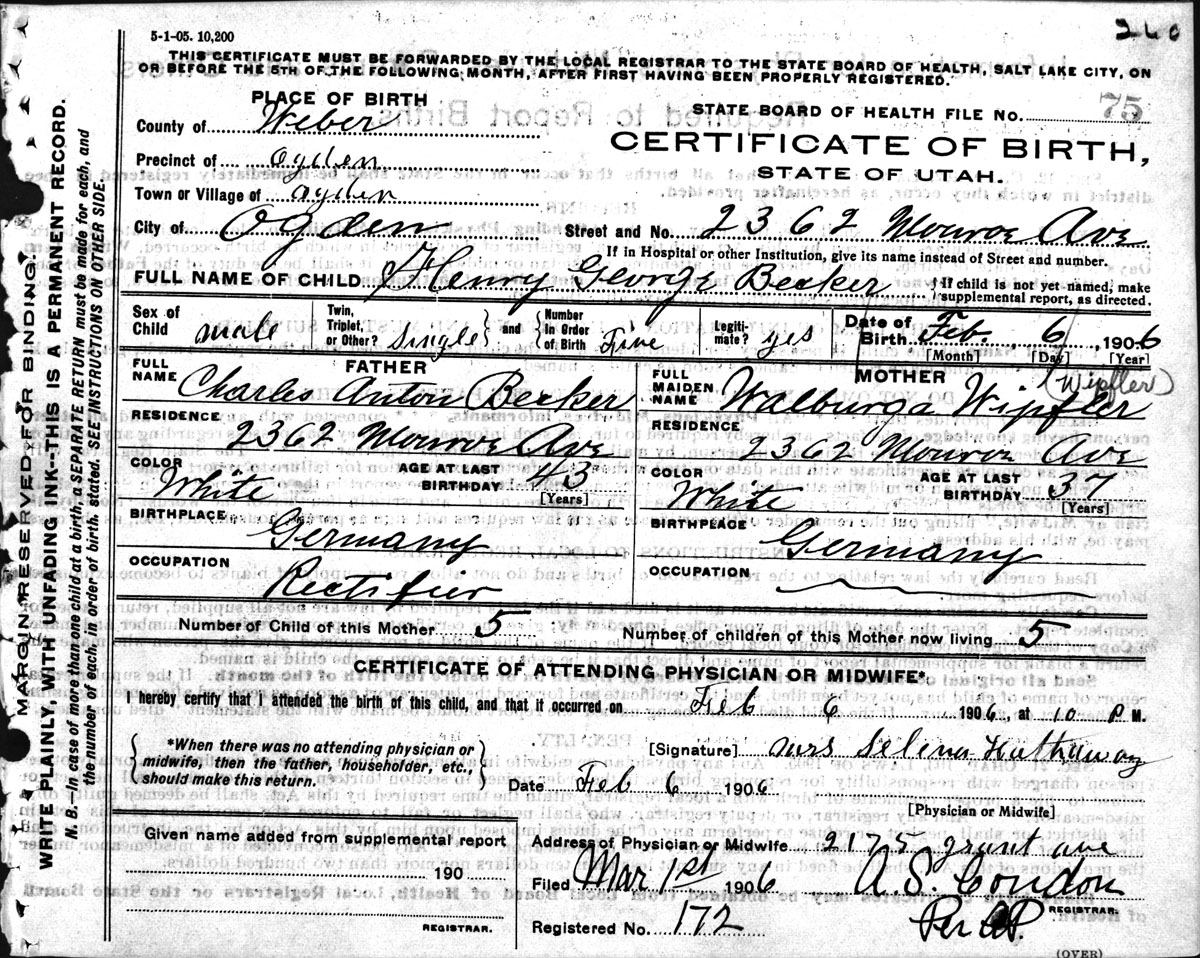 260
5-1-05. 10,200
THIS CERTIFICATE MUST BE FORWARDED BY THE LOCAL REGISTRAR TO THE STATE BOARD OF HEALTH, SALT LAKE CITY, ON
OR BEFORE THE 5TH OF THE FOLLOWING MONTH, AFTER FIRST HAVING BEEN PROPERLY REGISTERED.
PLACE OF BIRTH
STATE BOARD OF HEALTH FILE NO. 75
County of Weber
CERTIFICATE OF BIRTH,
Precinct of Ogden
STATE OF UTAH.
Town or Village of Ogden
City of Ogden Street and No. 2362 Monroe Ave
If in Hospital or other Institution, give its name instead of Street and number.
FULL NAME OF CHILD Henry George Becker } If child is not yet named, make supplemental report, as directed.
Sex of Child male Twin, Triplet, or Other? Single } and { Number in Order of Birth Five Legiti-mate? yes Date of Birth Feb. 6, 1906
[Month] [Day] [Year]
FATHER MOTHER (Wipfler)
FULL NAME Charles Anton Becker FULL MAIDEN NAME Walburga Wipfler
RESIDENCE 2362 Monroe Ave RESIDENCE 2362 Monroe Ave
COLOR White AGE AT LAST BIRTHDAY 43 [Years] COLOR White AGE AT LAST BIRTHDAY 37 [Years]
BIRTHPLACE Germany BIRTHPLACE Germany
OCCUPATION Rectifier OCCUPATION
Number of Child of this Mother 5 Number of children of this Mother now living 5
CERTIFICATE OF ATTENDING PHYSICIAN OR MIDWIFE*
I hereby certify that I attended the birth of this child, and that it occurred on Feb 6 1906, at 10 P M.
{ *When there was no attending physician or
midwife, then the father, householder, etc.,
should make this return. }
[Signature] Mrs Selena Hathaway
Date Feb 6 1906
[Physician or Midwife]
Given name added from supplemental report
190
REGISTRAR.
Address of Physician or Midwife 2175 Grant ave
Filed Mar 1st 1906 A. S. Condon
REGISTRAR.
Registered No. 172 Per
(OVER)
MARGIN RESERVED FOR BINDING.
WRITE PLAINLY, WITH UNFADING INK--THIS IS A PERMANENT RECORD.
N. B.—In case of more than one child at a birth, a SEPARATE RETURN must be made for each, and
the number of each, in order of birth, stated. SEE INSTRUCTIONS ON OTHER SIDE.